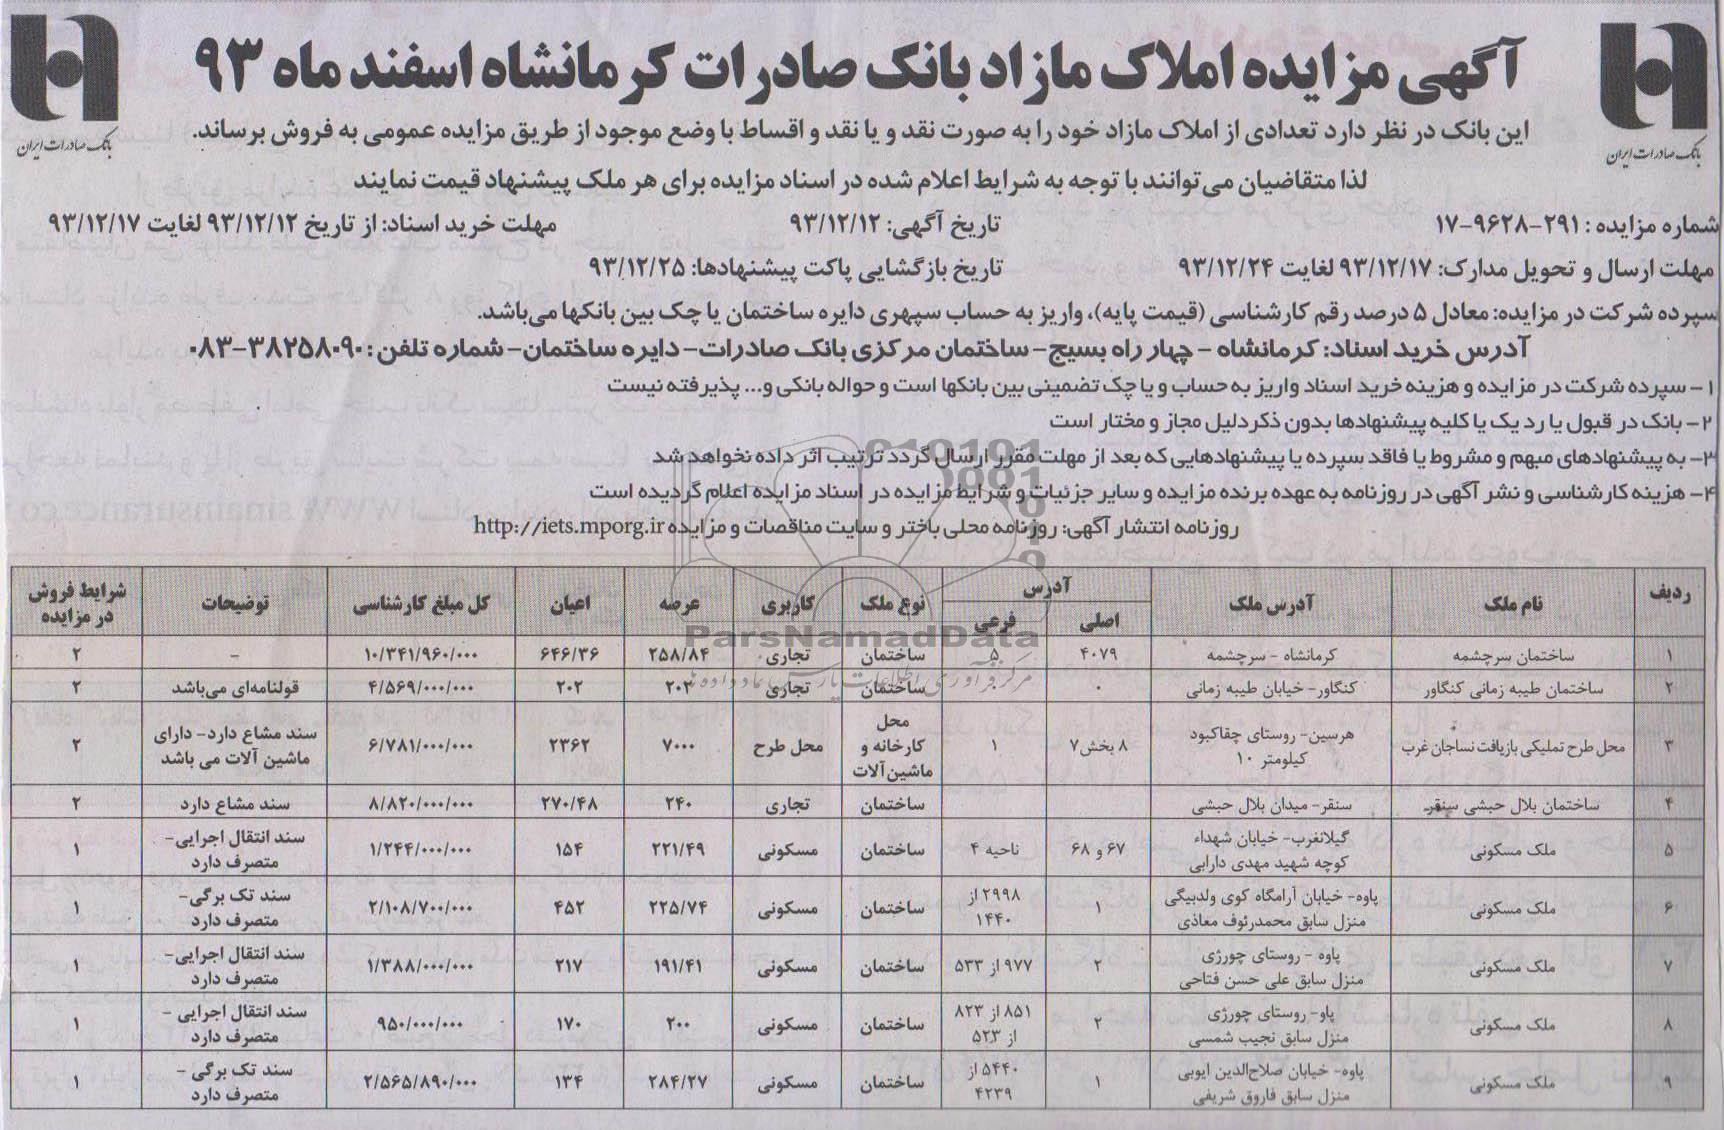 آگهی مزایده املاک مازاد بانک صادرات کرمانشاه اسفند ماه ۹۳
بانک صادرات ایران
بانک صادرات ایران
این بانک در نظر دارد تعدادی از املاک مازاد خود را به صورت نقد و یا نقد و اقساط با وضع موجود از طریق مزایده عمومی به فروش برساند.
لذا متقاضیان می‌توانند با توجه به شرایط اعلام شده در اسناد مزایده برای هر ملک پیشنهاد قیمت نمایند
شماره مزایده : ۲۹۱-۹۶۲۸-۱۷ تاریخ آگهی: ۹۳/۱۲/۱۲ مهلت خرید اسناد: از تاریخ ۹۳/۱۲/۱۲ لغایت ۹۳/۱۲/۱۷
مهلت ارسال و تحویل مدارک: ۹۳/۱۲/۱۷ لغایت ۹۳/۱۲/۲۴ تاریخ بازگشایی پاکت پیشنهادها: ۹۳/۱۲/۲۵
سپرده شرکت در مزایده: معادل ۵ درصد رقم کارشناسی (قیمت پایه)، واریز به حساب سپهری دایره ساختمان یا چک بین بانکها می‌باشد.
آدرس خرید اسناد: کرمانشاه - چهار راه بسیج- ساختمان مرکزی بانک صادرات- دایره ساختمان- شماره تلفن : ۳۸۲۵۸۰۹۰-۰۸۳
۱- سپرده شرکت در مزایده و هزینه خرید اسناد واریز به حساب و یا چک تضمینی بین بانکها است و حواله بانکی و... پذیرفته نیست
۲- بانک در قبول یا رد یک یا کلیه پیشنهادها بدون ذکر دلیل مجاز و مختار است
۳- به پیشنهادهای مبهم و مشروط یا فاقد سپرده یا پیشنهادهایی که بعد از مهلت مقرر ارسال گردد ترتیب اثر داده نخواهد شد
۴- هزینه کارشناسی و نشر آگهی در روزنامه به عهده برنده مزایده و سایر جزئیات و شرایط مزایده در اسناد مزایده اعلام گردیده است
روزنامه انتشار آگهی: روزنامه محلی باختر و سایت مناقصات و مزایده http://iets.mporg.ir
ParsNamadData
مرکز فرآوری اطلاعات پارس نماد داده ها
ردیف نام ملک آدرس ملک آدرس اصلی فرعی نوع ملک کاربری عرصه اعیان کل مبلغ کارشناسی توضیحات شرایط فروش در مزایده
۱ ساختمان سرچشمه کرمانشاه - سرچشمه ۴۰۷۹ ۵ ساختمان تجاری ۲۵۸/۸۴ ۶۴۶/۳۶ ۱۰/۳۴۱/۹۶۰/۰۰۰ - ۲
۲ ساختمان طیبه زمانی کنگاور کنگاور- خیابان طیبه زمانی ۰ ساختمان تجاری ۲۰۲ ۲۰۲ ۴/۵۶۹/۰۰۰/۰۰۰ قولنامه‌ای می‌باشد ۲
۳ محل طرح تملیکی بازیافت نساجان غرب هرسین- روستای چقاکبود کیلومتر ۱۰ ۸ بخش ۷ ۱ محل کارخانه و ماشین‌آلات محل طرح ۷۰۰۰ ۲۳۶۲ ۶/۷۸۱/۰۰۰/۰۰۰ سند مشاع دارد- دارای ماشین آلات می باشد ۲
۴ ساختمان بلال حبشی سنقر سنقر- میدان بلال حبشی ساختمان تجاری ۲۴۰ ۲۷۰/۴۸ ۸/۸۲۰/۰۰۰/۰۰۰ سند مشاع دارد ۲
۵ ملک مسکونی گیلانغرب- خیابان شهداء کوچه شهید مهدی دارابی ۶۷ و ۶۸ ناحیه ۴ ساختمان مسکونی ۲۲۱/۴۹ ۱۵۴ ۱/۲۴۴/۰۰۰/۰۰۰ سند انتقال اجرایی- متصرف دارد ۱
۶ ملک مسکونی پاوه- خیابان آرامگاه کوی ولدبیگی منزل سابق محمدرئوف معاذی ۱ ۲۹۹۸ از ۱۴۴۰ ساختمان مسکونی ۲۲۵/۷۴ ۴۵۲ ۲/۱۰۸/۷۰۰/۰۰۰ سند تک برگی- متصرف دارد ۱
۷ ملک مسکونی پاوه - روستای چورژی منزل سابق علی حسن فتاحی ۲ ۹۷۷ از ۵۳۳ ساختمان مسکونی ۱۹۱/۴۱ ۲۱۷ ۱/۳۸۸/۰۰۰/۰۰۰ سند انتقال اجرایی- متصرف دارد ۱
۸ ملک مسکونی پاو- روستای چورژی منزل سابق نجیب شمسی ۲ ۸۵۱ از ۸۲۳ از ۵۲۳ ساختمان مسکونی ۲۰۰ ۱۷۰ ۹۵۰/۰۰۰/۰۰۰ سند انتقال اجرایی - متصرف دارد ۱
۹ ملک مسکونی پاوه- خیابان صلاح‌الدین ایوبی منزل سابق فاروق شریفی ۱ ۵۴۴۰ از ۴۲۳۹ ساختمان مسکونی ۲۸۴/۲۷ ۱۳۴ ۲/۵۶۵/۸۹۰/۰۰۰ سند تک برگی - متصرف دارد ۱